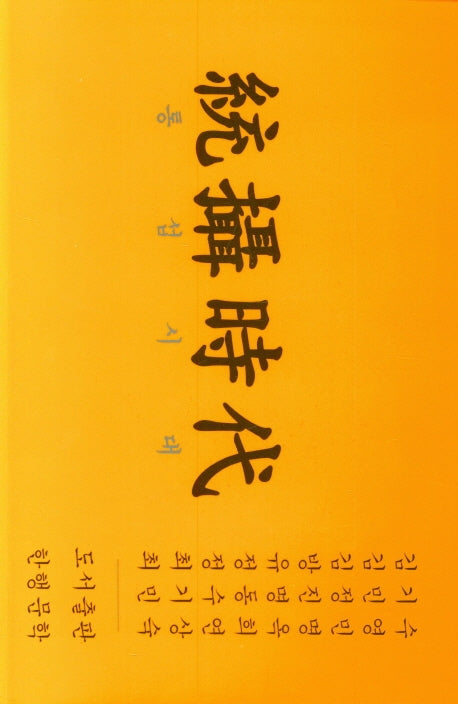 統攝時代
통섭시대
김기수
김민영
김정민
방진명
유명옥
정동희
정수연
최기상
최민숙
도서출판
한행문학